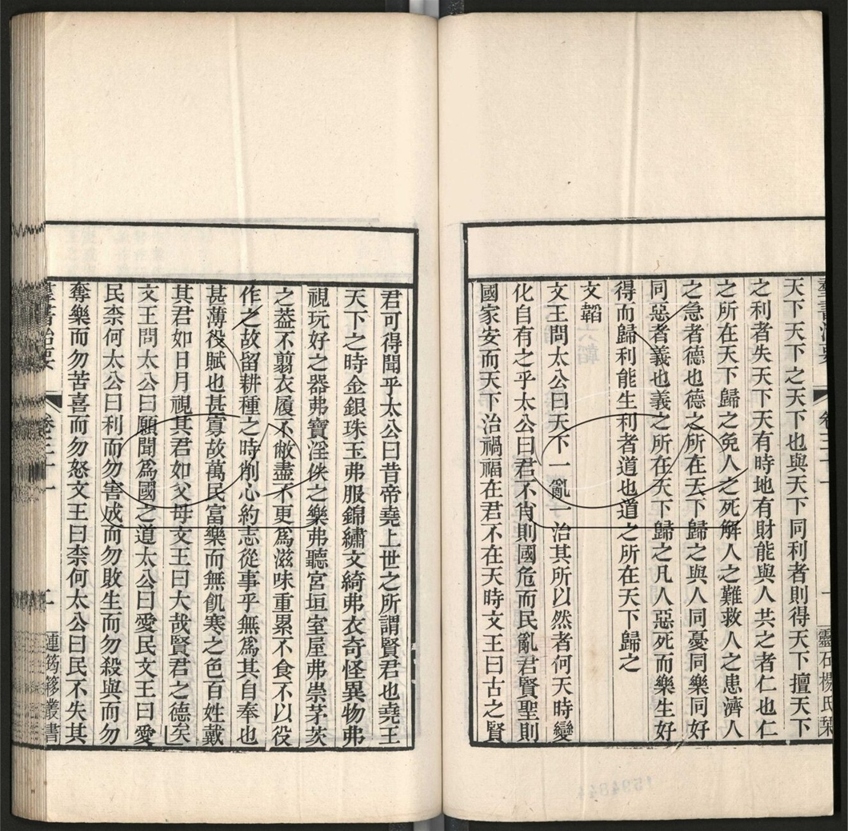 天下天下之天下也與天下同利者則得天下擅天下
之利者失天下天有時地有財能與人共之者仁也仁
之所在天下歸之免人之死解人之難救人之患濟人
之急者德也德之所在天下歸之與人同憂同樂同好
同惡者義也義之所在天下歸之凡人惡死而樂生好
得而歸利能生利者道也道之所在天下歸之
文韜
文王問太公曰天下一亂一治其所以然者何天時變
化自有之乎太公曰君不肖則國危而民亂君賢聖則
國家安而天下治禍福在君不在天時文王曰古之賢
君可得聞乎太公曰昔帝堯上世之所謂賢君也堯王
天下之時金銀珠玉弗服錦繡文綺弗衣奇怪異物弗
視玩好之器弗寶淫佚之樂弗聽宮垣室屋弗崇茅茨
之蓋不翦衣履不敝盡不更為滋味重累不食不以役
作之故留耕種之時削心約志從事乎無為其自奉也
甚薄役賦也甚寡故萬民富樂而無飢寒之色百姓戴
其君如日月視其君如父母文王曰大哉賢君之德矣
文王問太公曰願聞為國之道太公曰愛民文王曰愛
民柰何太公曰利而勿害成而勿敗生而勿殺與而勿
奪樂而勿苦喜而勿怒文王曰柰何太公曰民不失其
羣書治要 卷三十一 連筠簃叢書